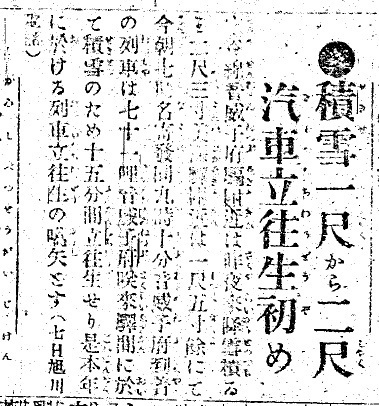 積雪一尺から二尺
汽車立往生初め
音威子府附近は昨夜来降雪積る
二尺三寸 は一尺五寸餘にて
今朝七時名寄發同九時十分音威子府到着
の列車は七十一哩音威子府咲來驛間に於
て積雪のため十五分間立往生せり是本年
に於ける列車立往生の嚆矢とす(七日旭川
電話)